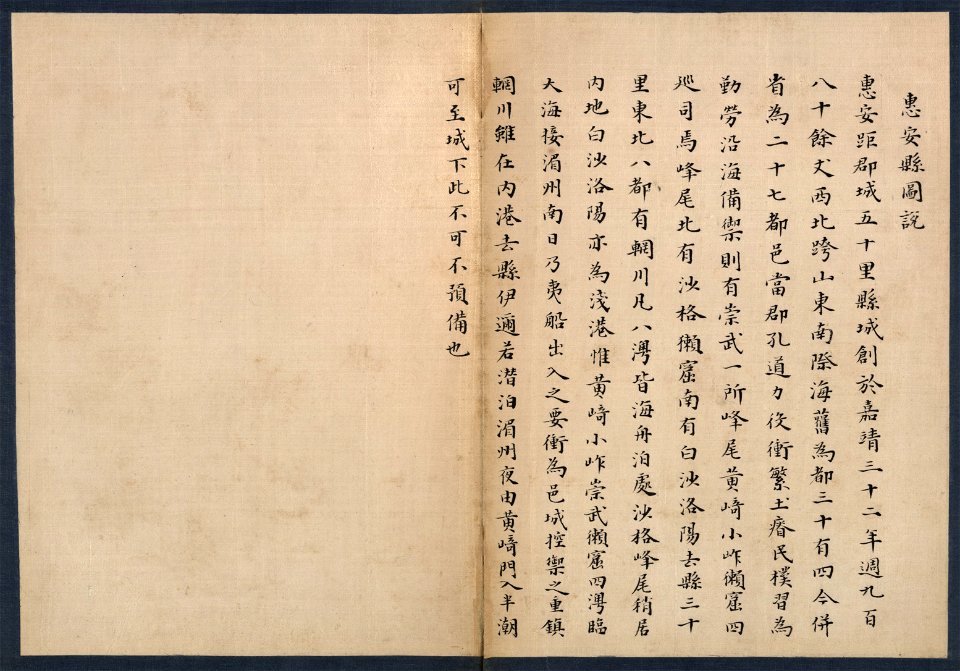 惠安縣圖説
惠安距郡城五十里縣城創於嘉靖三十二年週九百
八十餘丈西北跨山東南際海舊為都三十有四今併
省為二十七都邑當郡孔道力役衝繁土瘠民樸習為
勤勞沿海備禦則有崇武一所峰尾黄﨑小岞獺窟四
廵司焉峰尾北有沙格獺窟南有白沙洛陽去縣三十
里東北八都有輞川凡八灣皆海舟泊處沙格峰尾稍居
内地白沙洛陽亦為淺港惟黄﨑小岞崇武獺窟四灣臨
大海接湄州南日乃夷船出入之要衝為邑城控禦之重鎮
輞川雖在内港去縣伊邇若潜泊湄州夜由黄﨑門入半潮
可至城下此不可不預備也